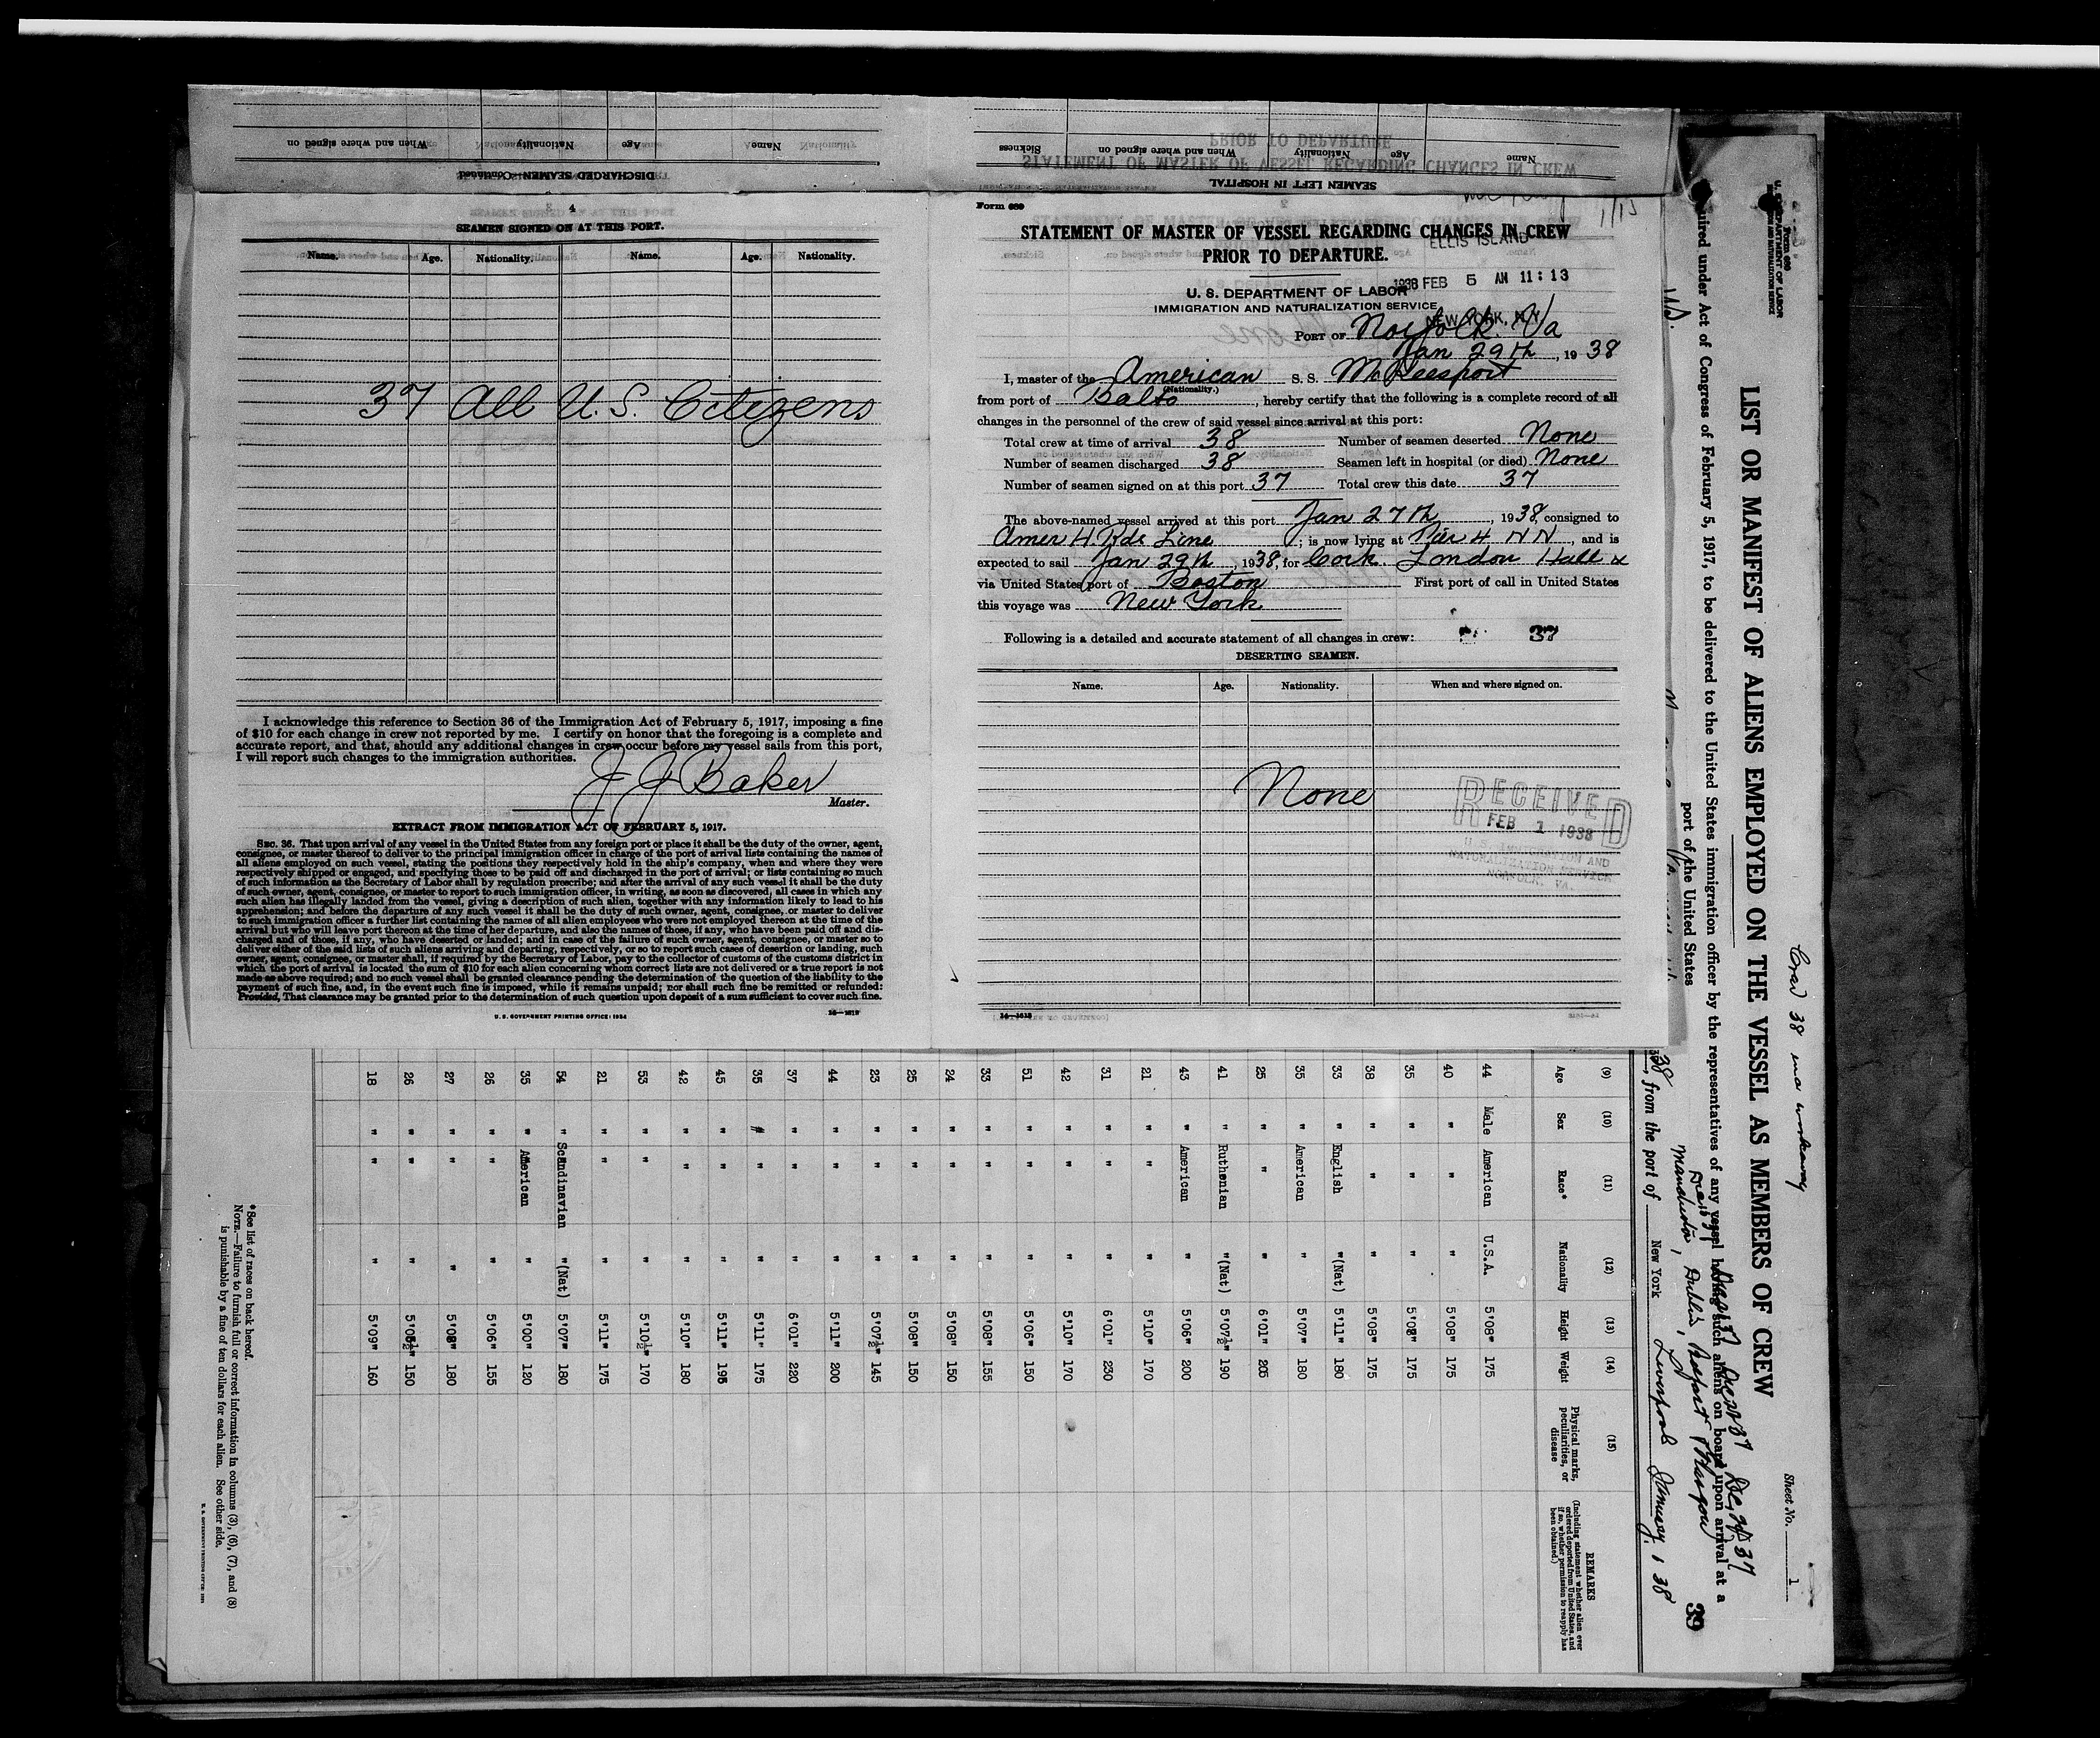 DISCHARGED SEAMEN—Continued
Name Age Nationality When and where signed on
SEAMEN LEFT IN HOSPITAL
Name Age Nationality When and where signed on Sickness
4
SEAMEN SIGNED ON AT THIS PORT.
Name. Age. Nationality. Name. Age. Nationality.
37 All U.S. Citizens
I acknowledge this reference to Section 36 of the Immigration Act of February 5, 1917, imposing a fine
of $10 for each change in crew not reported by me. I certify on honor that the foregoing is a complete and
accurate report, and that, should any additional changes in crew occur before my vessel sails from this port,
I will report such changes to the immigration authorities.
J J Baker
Master.
EXTRACT FROM IMMIGRATION ACT OF FEBRUARY 5, 1917.
SEC. 36. That upon arrival of any vessel in the United States from any foreign port or place it shall be the duty of the owner, agent,
consignee, or master thereof to deliver to the principal immigration officer in charge of the port of arrival lists containing the names of
all aliens employed on such vessel, stating the positions they respectively hold in the ship's company, when and where they were
respectively shipped or engaged, and specifying those to be paid off and discharged in the port of arrival; or lists containing so much
of such information as the Secretary of Labor shall by regulation prescribe; and after the arrival of any such vessel it shall be the duty
of such owner, agent, consignee, or master to report to such immigration officer, in writing, as soon as discovered, all cases in which any
such alien has illegally landed from the vessel, giving a description of such alien, together with any information likely to lead to his
apprehension; and before the departure of any such vessel it shall be the duty of such owner, agent, consignee, or master to deliver
to such immigration officer a further list containing the names of all alien employees who were not employed thereon at the time of the
arrival but who will leave port thereon at the time of her departure, and also the names of those, if any, who have been paid off and dis-
charged and of those, if any, who have deserted or landed; and in case of the failure of such owner, agent, consignee, or master so to
deliver either of the said lists of such aliens arriving and departing, respectively, or so to report such cases of desertion or landing, such
owner, agent, consignee, or master shall, if required by the Secretary of Labor, pay to the collector of customs of the customs district in
which the port of arrival is located the sum of $10 for each alien concerning whom correct lists are not delivered or a true report is not
made as above required; and no such vessel shall be granted clearance pending the determination of the question of the liability to the
payment of such fine, and, in the event such fine is imposed, while it remains unpaid; nor shall such fine be remitted or refunded:
Provided, That clearance may be granted prior to the determination of such question upon deposit of a sum sufficient to cover such fine.
U. S. GOVERNMENT PRINTING OFFICE: 1934 16—1619
Form 689
1/15
STATEMENT OF MASTER OF VESSEL REGARDING CHANGES IN CREW
PRIOR TO DEPARTURE.
ELLIS ISLAND
1938 FEB 5 AM 11:13
NEW YORK, N.Y.
U. S. DEPARTMENT OF LABOR
IMMIGRATION AND NATURALIZATION SERVICE
PORT OF Norfolk Va
Jan 29th, 1938
I, master of the American S. S. McKeesport
(Nationality.)
from port of Balto, hereby certify that the following is a complete record of all
changes in the personnel of the crew of said vessel since arrival at this port:
Total crew at time of arrival 38 Number of seamen deserted None
Number of seamen discharged 38 Seamen left in hospital (or died) None
Number of seamen signed on at this port 37 Total crew this date 37
The above-named vessel arrived at this port Jan 27th, 1938, consigned to
Amer H. Rds Line; is now lying at Pier 4 N N, and is
expected to sail Jan 29th, 1938, for Cork London Hull &
via United States port of Boston First port of call in United States
this voyage was New York
Following is a detailed and accurate statement of all changes in crew: 37
DESERTING SEAMEN.
Name. Age. Nationality. When and where signed on.
None
RECEIVED
FEB 1 1938
U. S. IMMIGRATION AND
NATURALIZATION SERVICE
NORFOLK, VA.
16—1619
Form 680
U. S. DEPARTMENT OF LABOR
IMMIGRATION AND NATURALIZATION SERVICE
Sheet No. 1
LIST OR MANIFEST OF ALIENS EMPLOYED ON THE VESSEL AS MEMBERS OF CREW
required under Act of Congress of February 5, 1917, to be delivered to the United States immigration officer by the representatives of any vessel having such aliens on board upon arrival at a
port of the United States
39
Manchester, Dublin, Belfast Glasgow
38, from the port of New York Liverpool January 1 38
(9) (10) (11) (12) (13) (14) (15)
Age Sex Race* Nationality Height Weight Physical marks, peculiarities, or disease
REMARKS
(Including statement whether alien ever ordered deported from United States, and if so, whether permission to reapply has been obtained.)
44 Male American U.S.A. 5'08" 175
40 " " " 5'08" 175
35 " " " 5'08" 175
38 " " " 5'08" 175
33 " English "(Nat) 5'11" 180
35 " American " 5'07" 180
25 " " " 6'01" 205
41 " Ruthenian "(Nat) 5'07½" 190
43 " American " 5'06" 200
21 " " " 5'10" 170
31 " " " 6'01" 230
42 " " " 5'10" 170
51 " " " 5'06" 150
33 " " " 5'08" 155
24 " " " 5'08" 150
25 " " " 5'08" 150
23 " " " 5'07½" 145
44 " " " 5'11" 200
37 " " " 6'01" 220
35 " " " 5'11" 175
45 " " " 5'11" 195
42 " " " 5'10" 180
53 " " " 5'10½" 170
21 " " " 5'11" 175
54 " Scandinavian "(Nat) 5'07" 180
35 " American " 5'00" 120
26 " " " 5'06" 155
27 " " " 5'08" 180
26 " " " 5'06½" 150
18 " " " 5'09" 160
*See list of races on back hereof.
NOTE.—Failure to furnish full or correct information in columns (3), (6), (7), and (8)
is punishable by a fine of ten dollars for each alien. See other side.